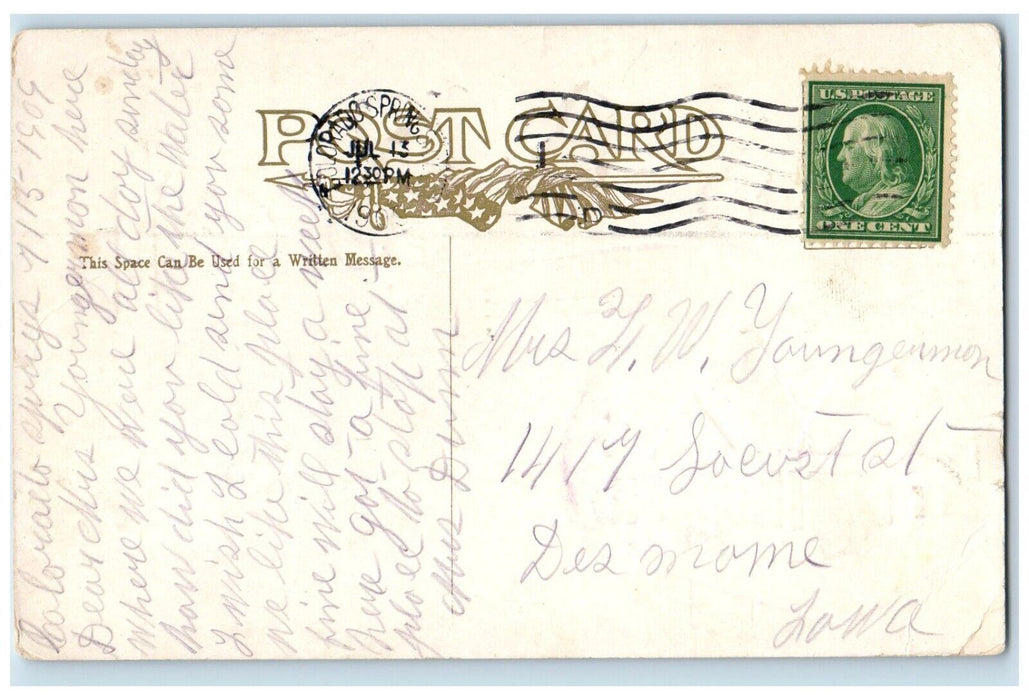 POST CARD
COLORADO SPRINGS
JUL 13
12 30 PM
U.S. POSTAGE
ONE CENT
This Space Can Be Used for a Written Message.
Colorado springs 7/13-1909
Dear Mrs Youngermon here
where we were all day sunday
how did you like the water
I wish I cold send you some
we like this place
fine will stay a week
have got a fine
place to stop at
Mrs Dunn
Mrs H. W. Youngermon
1417 Locust st
Des mome
Iowa